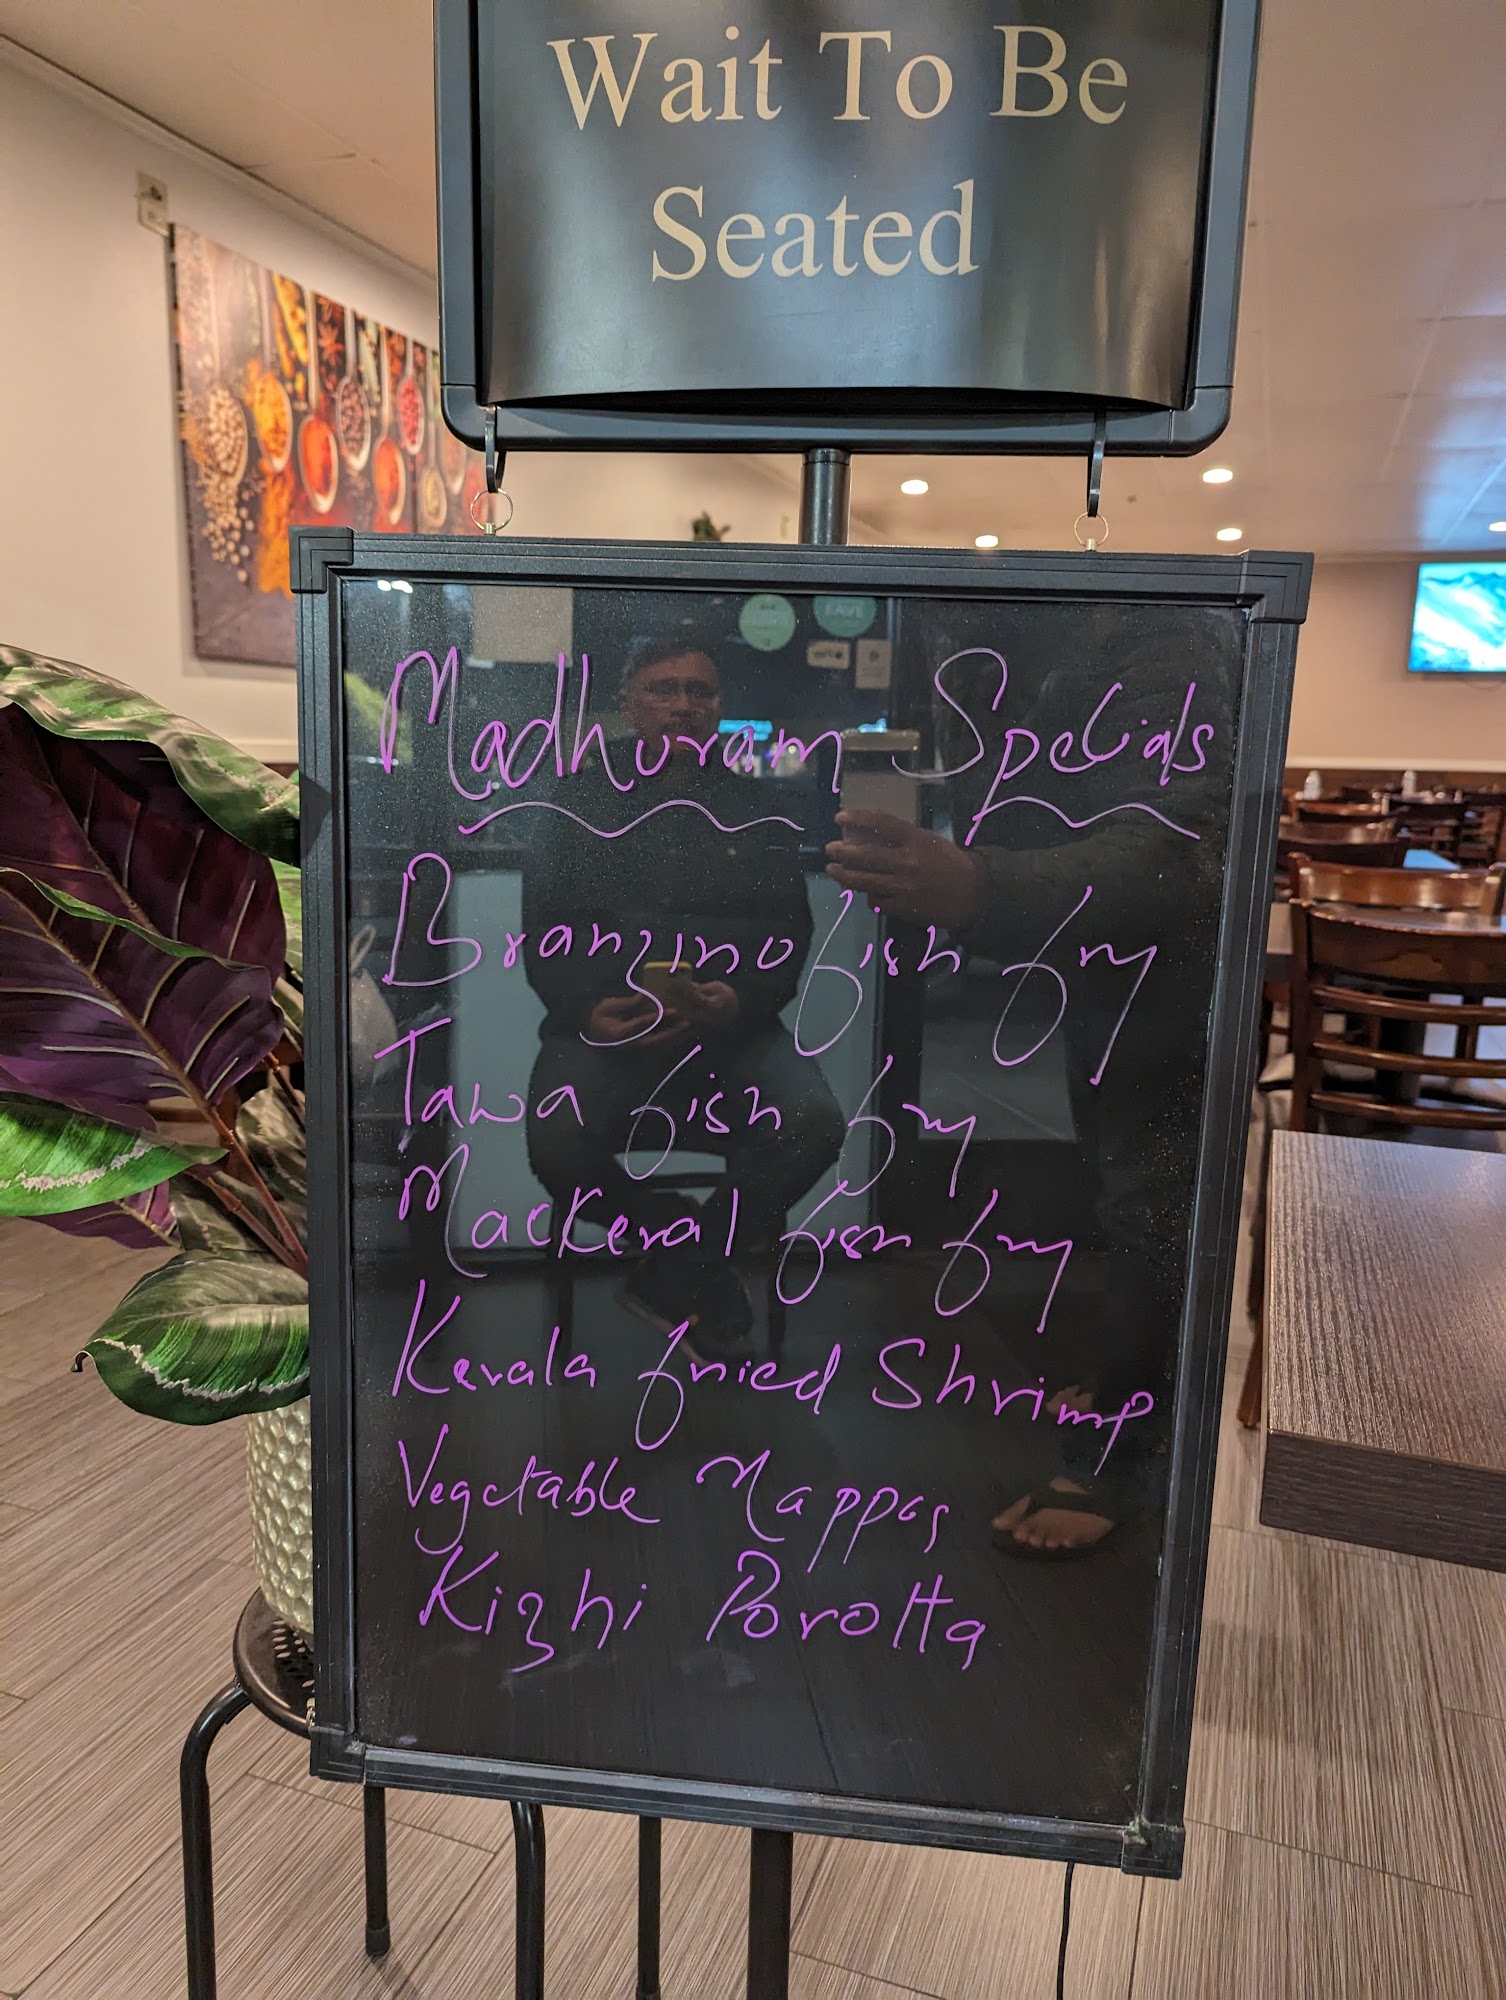 Wait To Be
Seated
Madhuram Specials
Branzino fish fry
Tawa fish fry
Mackeral fish fry
Kerala fried Shrimp
Vegetable Mappas
Kizhi Porotta